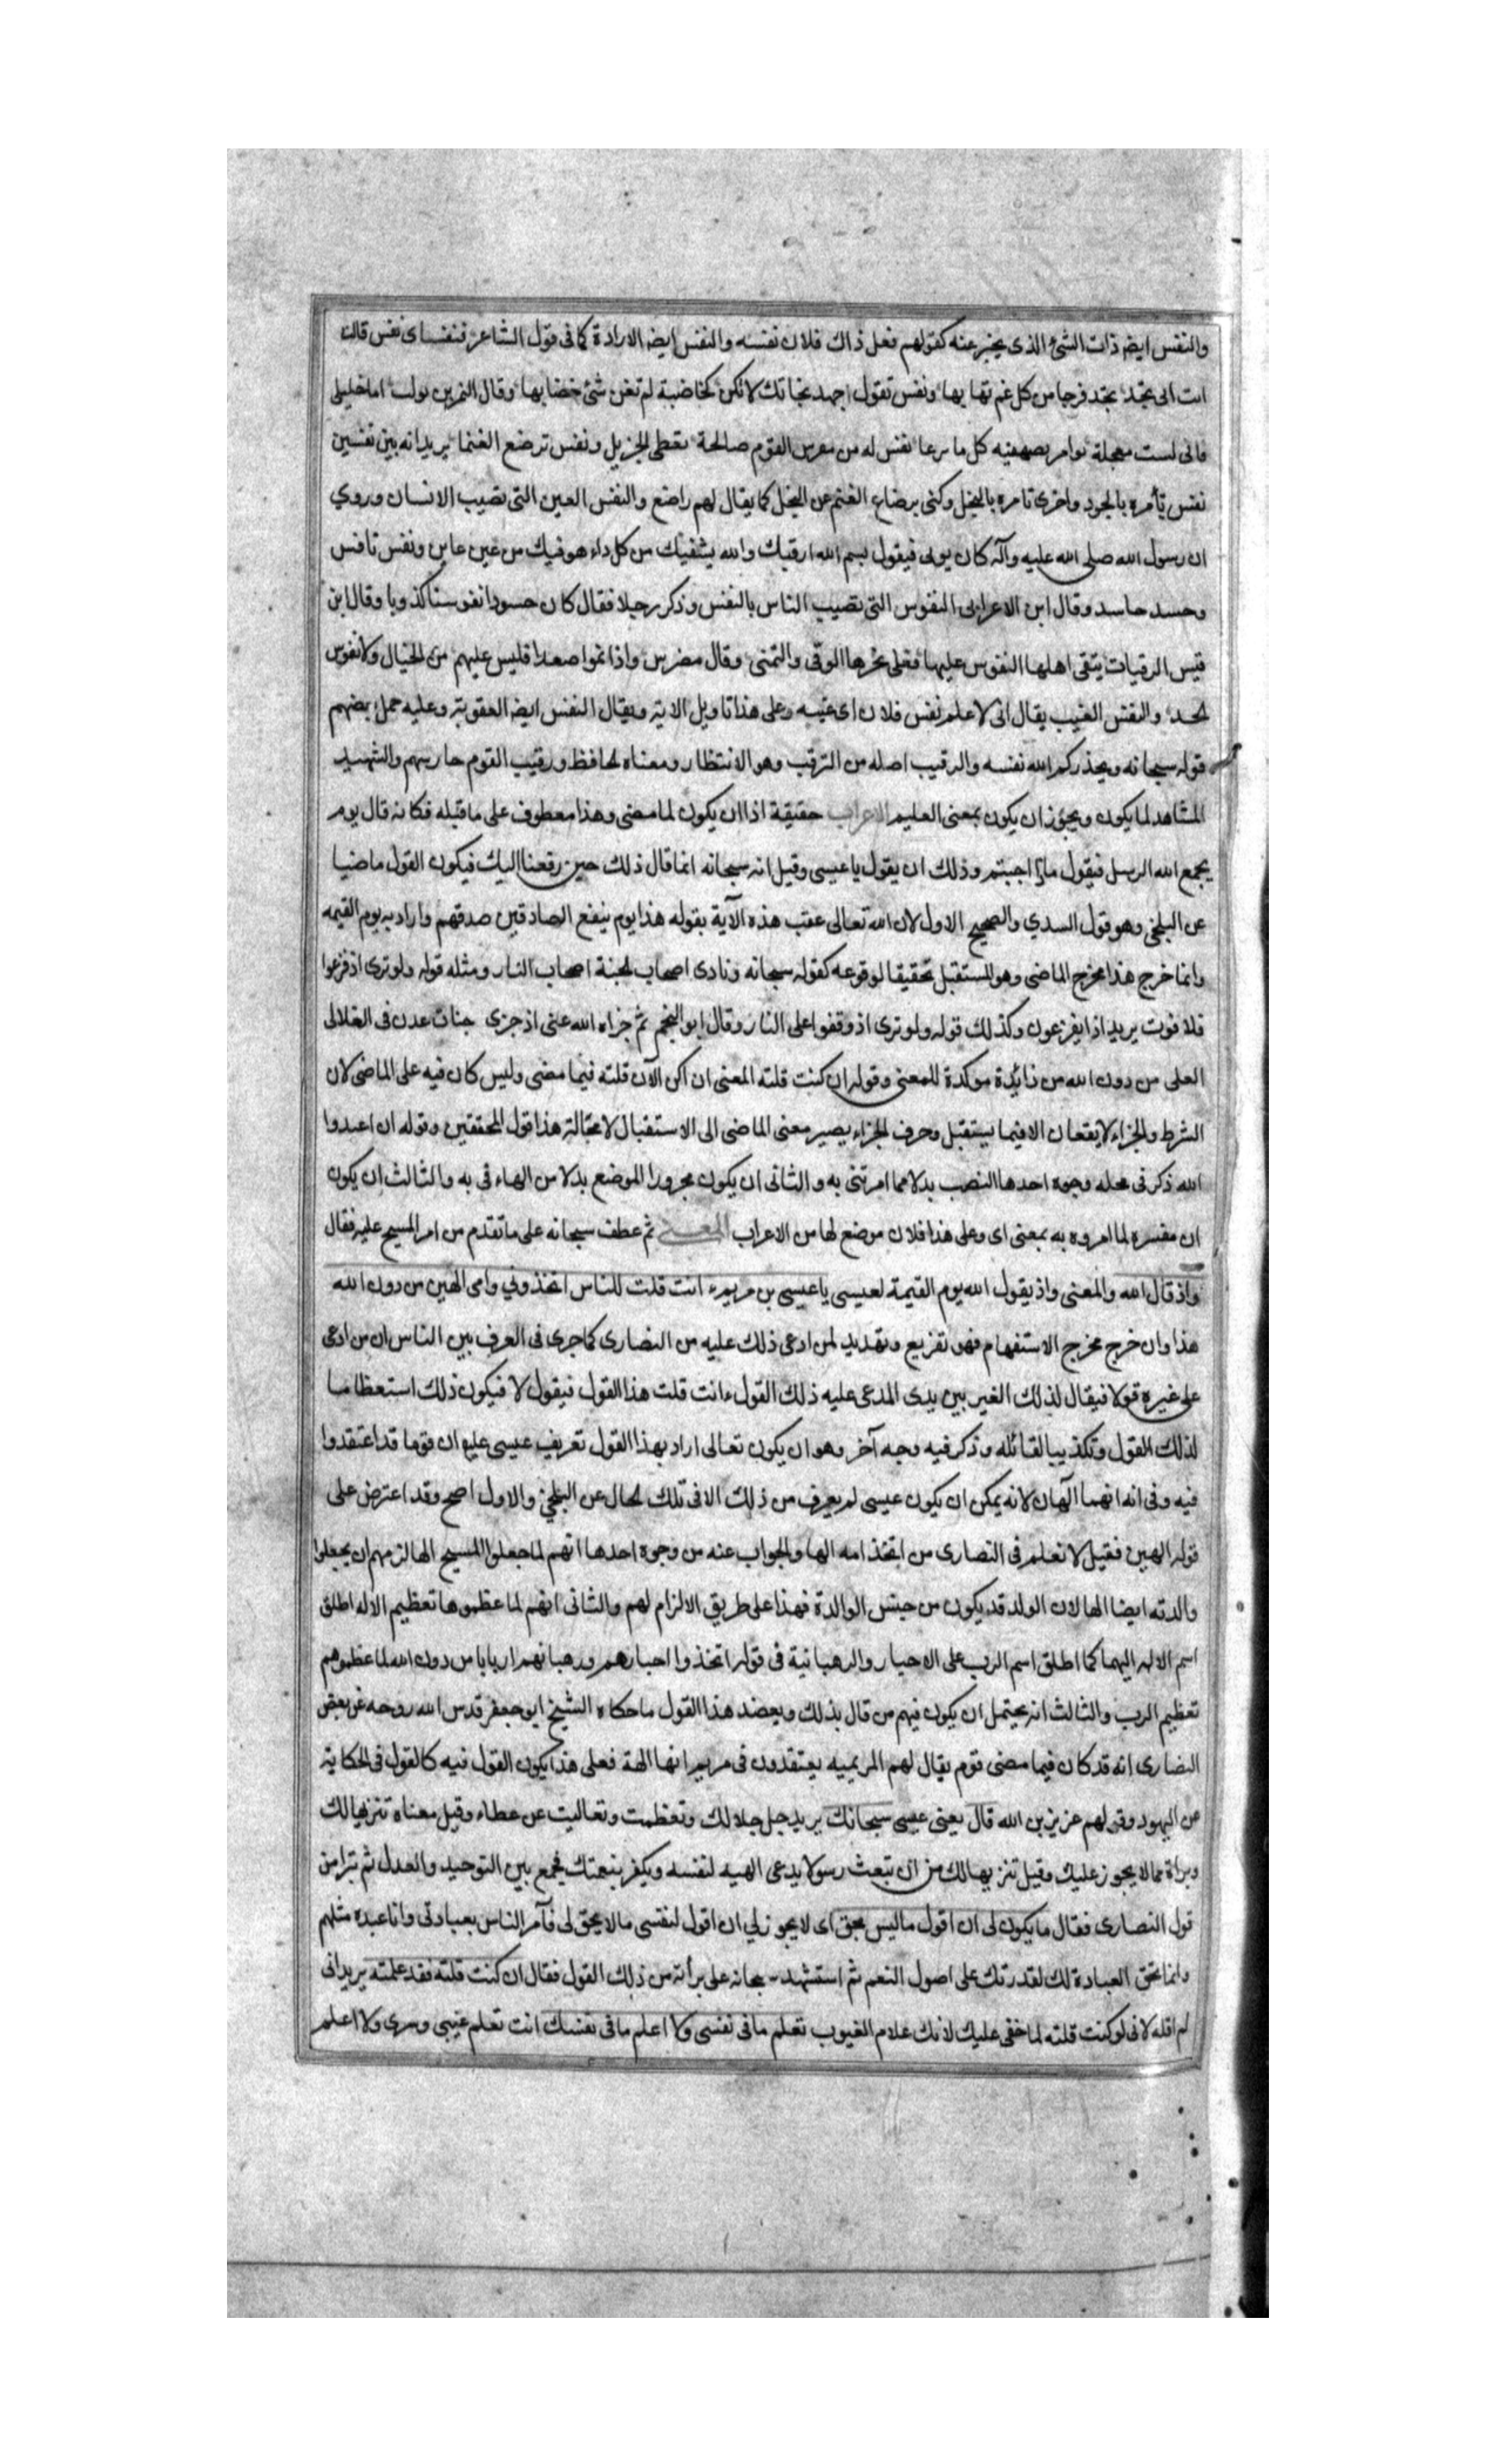 والنفس ايضه ذات الشئ الذى يخبر عنه كقولهم فعل ذاك فلان نفسه والنفس ايضه الارادة كما فى قول الشاعر فنفساى نفس قالت
ائت ابن بجدل تجد فرجا من كل غم تهابها ونفس تقول اجهد نجاتك لاتكن كخاضبة لم تغن شئ خضابها وقال النمر بن تولب اما خليلى
فانى لست معجله توامر نفسيه كل ما سرعا نفس له من نفوس القوم صالحة تعطى الجزيل ونفس ترضع الغنما يريد انه بين نفسين
نفس تأمره بالجود واخرى تامره بالبخل وكنى برضاع الغنم عن البخل كما يقال لهم راضع والنفس العين التى تصيب الانسان وروي
ان رسول الله صلى الله عليه وآله كان يرقى فيقول بسم الله ارقيك والله يشفيك من كل داء هو فيك من عين عاين ونفس نافس
وحسد حاسد وقال ابن الاعرابى النفوس التى تصيب الناس بالنفس وذكر رجلا فقال كان حسودا نفوسا كذوبا وقال ابن
قيس الرقيات يتقى اهلها النفوس عليها فعلى نحرها الرقى والتمنى وقال مضرس واذا نموا صعدا فليس عليهم من الخيال ولا نفوس
لحد والنفس الغيب يقال انى لا علم نفس فلان اى غيبه وعلى هذا تاويل الاية ويقال النفس ايضه العقوبة وعليه حمل بعضهم
قوله سبحانه ويحذركم الله نفسه والرقيب اصله من الترقب وهو الانتظار ومعناه الحافظ ورقيب القوم حارسهم والشهيد
المشاهد لما يكون ويجوز ان يكون بمعنى العليم الاعراب حقيقة اذا ان يكون لما مضى وهذا معطوف على ما قبله فكانه قال يوم
يجمع الله الرسل فيقول ماذا اجبتم وذلك ان يقول يا عيسى وقيل انه سبحانه انما قال ذلك حين رفعنا اليك فيكون القول ماضيا
عن البلخى وهو قول السدي والصحيح الاول لان الله تعالى عقب هذه الآية بقوله هذا يوم ينفع الصادقين صدقهم واراد به يوم القيمه
وانما خرج هذا مخرج الماضى وهو المستقبل تحقيقا لوقوعه كقوله سبحانه ونادى اصحاب الجنة اصحاب النار ومثله قوله ولو ترى اذ فزعوا
فلا فوت يريد اذا يفزعون وكذلك قوله ولو ترى اذ وقفوا على النار وقال ابو النجم ثم جزاه الله عنى اذ جزى جنات عدن فى العلالى
العلى من دون الله من زائدة موكدة للمعنى وقوله ان كنت قلته المعنى ان اكن الآن قلته فيما مضى وليس كان فيه على الماضى لان
الشرط والجزاء لا يقعان الا فيما يستقبل وحرف الجزاء يصير معنى الماضى الى الاستقبال لا محالة هذا قول المحققين وقوله ان اعبدوا
الله ذكر فى محله وجوه احدها النصب بدلا مما امرتنى به والثانى ان يكون مجرورا الموضع بدلا من الهاء فى به والثالث ان يكون
ان مفسره لما امروه به بمعنى اى وعلى هذا فلان موضع لها من الاعراب المعنى ثم عطف سبحانه على ما تقدم من امر المسيح عليه فقال
واذ قال الله والمعنى واذ يقول الله يوم القيمة لعيسى يا عيسى بن مريم ءانت قلت للناس اتخذوني وامى الهين من دون الله
هذا وان خرج مخرج الاستفهام فهو تقريع وتهديد لمن ادعى ذلك عليه من النصارى كما جرى فى العرف بين الناس ان من ادعى
على غيره قولا فيقال لذلك الغير بين يدى المدعى عليه ذلك القول ءانت قلت هذا القول فيقول لا فيكون ذلك استعظاما
لذلك القول وتكذيبا لقائله وذكر فيه وجه آخر وهو ان يكون تعالى اراد بهذا القول تعريف عيسى عليه ان قوما قد اعتقدوا
فيه وفى انه انهما آلهان لانه يمكن ان يكون عيسى لم يعرف من ذلك الا فى تلك الحال عن البلخى والاول اصح وقد اعترض على
قوله الهين فقيل لا نعلم فى النصارى من اتخذ امه الها والجواب عنه من وجوه احدها انهم لما جعلوا المسيح الها لزمهم ان يجعلوا
والدته ايضا الها لان الولد قد يكون من جنس الوالدة فهذا على طريق الالزام لهم والثانى انهم لما عظموها تعظيم الاله اطلق
اسم الاله اليهما كما اطلق اسم الرب على الاحبار والرهبانية فى قوله اتخذوا احبارهم ورهبانهم اربابا من دون الله لما عظموهم
تعظيم الرب والثالث انه يحتمل ان يكون فيهم من قال بذلك ويعضد هذا القول ما حكاه الشيخ ابو جعفر قدس الله روحه عن بعض
النصارى انه قد كان فيما مضى قوم يقال لهم المريميه يعتقدون فى مريم انها الهة فعلى هذا يكون القول فيه كالقول فى الحكاية
عن اليهود وقولهم عزير بن الله قال يعنى عيسى سبحانك يريد جل جلالك وتعظمت وتعاليت عن عطاء وقيل معناه تنزيها لك
وبراة مما لا يجوز عليك وقيل تنزيها لك من ان تبعث رسولا يدعى الهيه لنفسه ويكفر بنعمتك فجمع بين التوحيد والعدل ثم تبرا من
قول النصارى فقال ما يكون لى ان اقول ما ليس بحق اى لا يجوز لي ان اقول لنفسى ما لا يحق لى فآمر الناس بعبادتى وانا عبده مثلهم
وانما تحق العبادة لك لقدرتك على اصول النعم ثم استشهد سبحانه على برأته من ذلك القول فقال ان كنت قلته فقد علمته يريد انى
لم اقله لانى لو كنت قلته لما خفى عليك لانك علام الغيوب تعلم ما فى نفسى ولا اعلم ما فى نفسك انت تعلم غيبى وسرى ولا اعلم